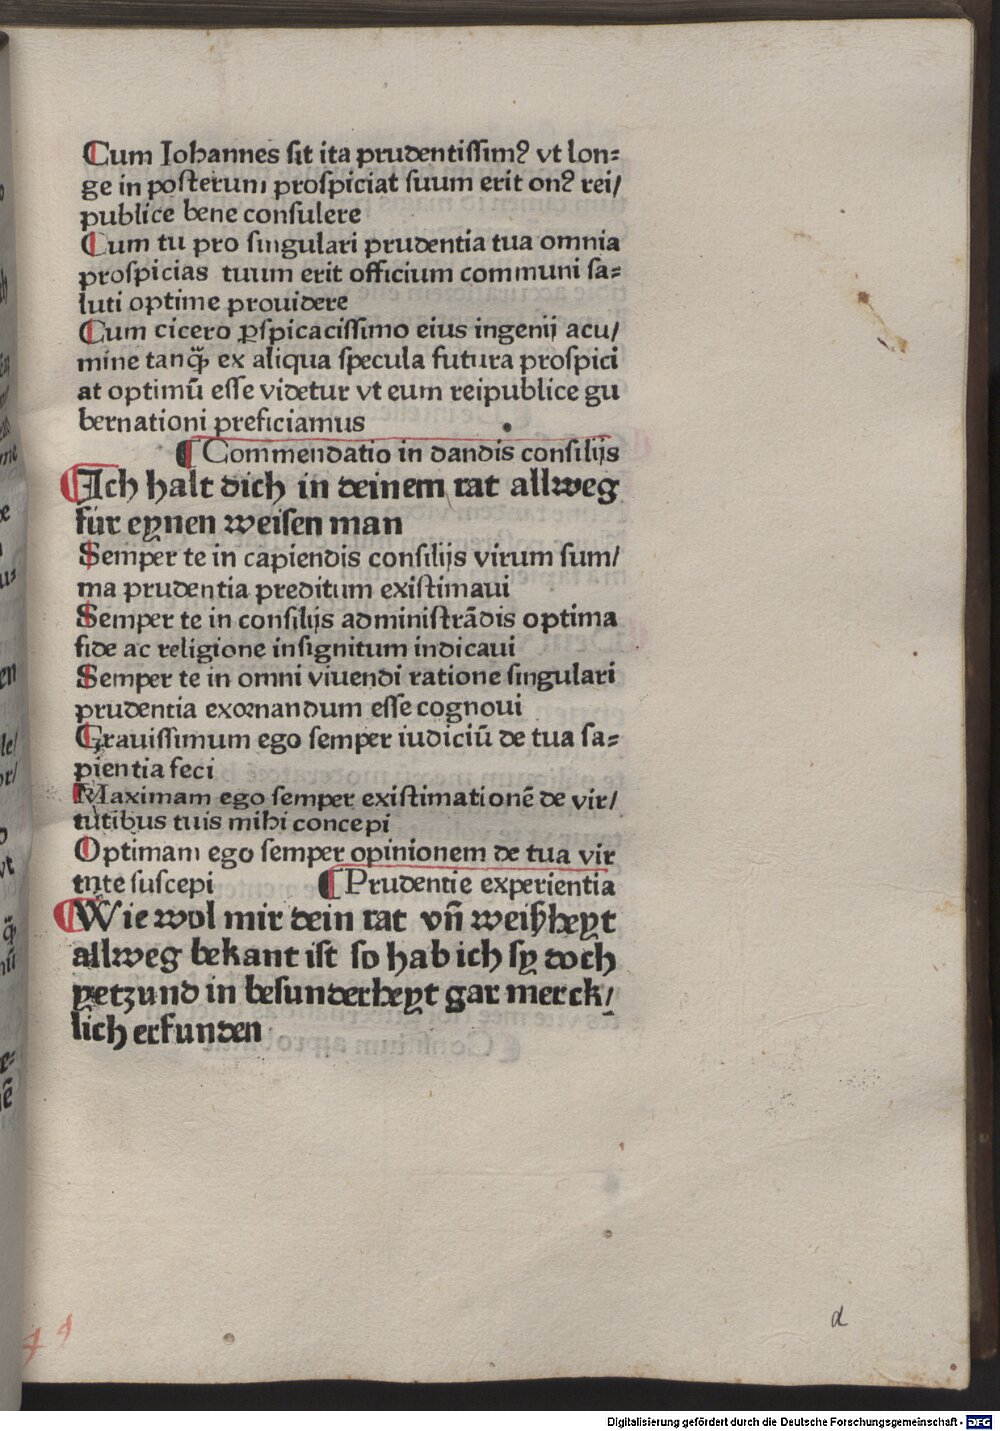 Cum Iohannes sit ita prudentissimꝰ vt lon=
ge in posterum prospiciat suum erit onꝰ rei/
publice bene consulere
Cum tu pro singulari prudentia tua omnia
prospicias tuum erit officium communi sa=
luti optime prouidere
Cum cicero ꝑspicacissimo eius ingenij acu/
mine tanq̃ꝫ ex aliqua specula futura prospici
at optimū esse videtur vt eum reipublice gu
bernationi preficiamus
¶ Commendatio in dandis consilijs
Ich halt dich in deinem rat allweg
für eynen weisen man
Semper te in capiendis consilijs virum sum/
ma prudentia preditum existimaui
Semper te in consilijs administrādis optima
fide ac religione insignitum indicaui
Semper te in omni viuendi ratione singulari
prudentia exornandum esse cognoui
Grauissimum ego semper iudiciū de tua sa=
pientia feci
Maximam ego semper existimationē de vir/
tutibus tuis mihi concepi
Optimam ego semper opinionem de tua vir
tute suscepi ¶ Prudentie experientia
Wie wol mir dein rat vn̄ weißheyt
allweg bekant ist so hab ich sy doch
yetzund in besunderheyt gar merck/
lich erfunden
d
Digitalisierung gefördert durch die Deutsche Forschungsgemeinschaft - DFG